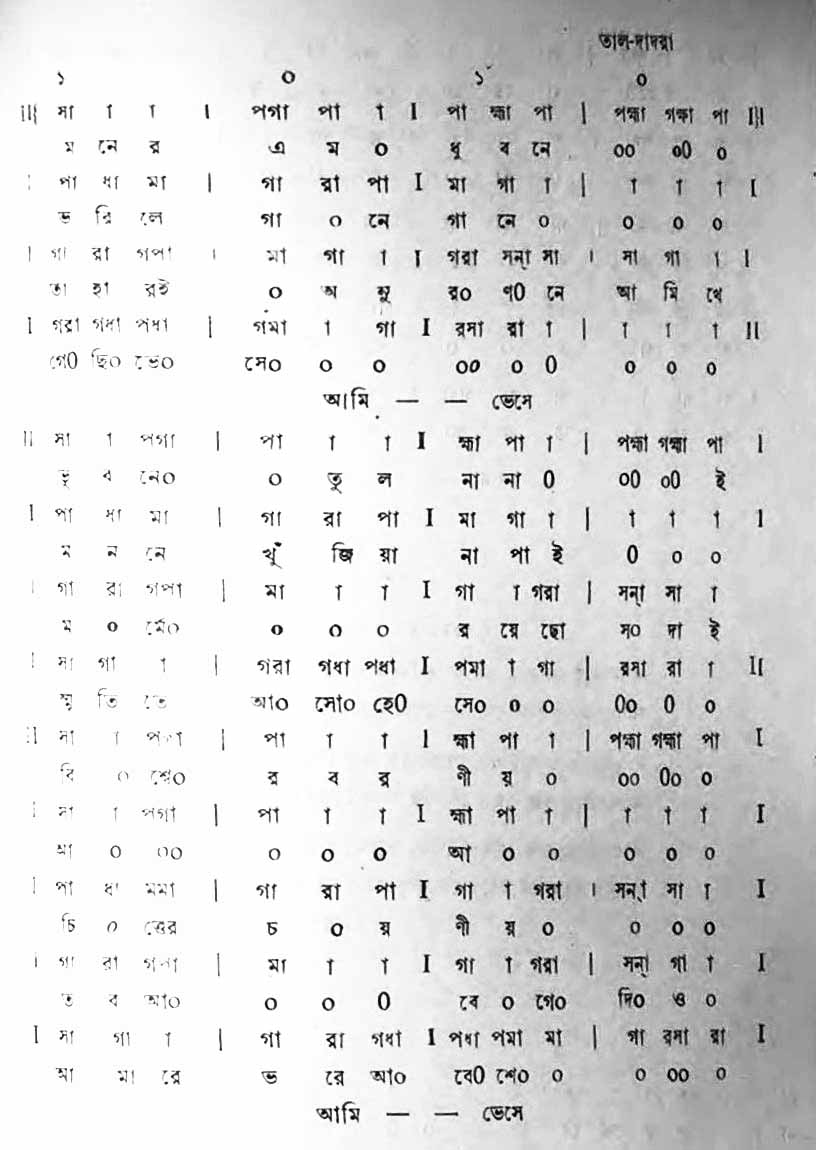 তাল-দাদরা
১ ০ ১´ ০
II{ সা া া । পগা পা া I পা হ্মা পা | পহ্মা গহ্মা পা I}I
ম নে র এ ম ০ ধু ব নে ০০ ০০ ০
I পা ধা মা | গা রা পা I মা গা া | া া া I
ভ রি লে গা ০ নে গা নে ০ ০ ০ ০
I গা রা গপা । মা গা া I গরা সন্‌া সা । সা গা া I
তা হা রই ০ অ নু র০ ণ০ নে আ মি থে
I গরা গধা পধা | গমা া গা I রসা রা া | া া া II
গে০ ছি০ ভে০ সে০ ০ ০ ০০ ০ ০ ০ ০ ০
আমি — — ভেসে
II সা া পগা | পা া া I হ্মা পা া | পহ্মা গহ্মা পা I
ভু ব নে০ ০ তু ল না না ০ ০০ ০০ ই
I পা ধা মা | গা রা পা I মা গা া | া া া I
ম ন নে খুঁ জি য়া না পা ই ০ ০ ০
I গা রা গপা | মা া া I গা া গরা | সন্‌া সা া
ম ০ র্মে০ ০ ০ ০ র য়ে ছো স০ দা ই
I সা গা া | গরা গধা পধা I পমা া গা | রসা রা া II
স্মৃ তি তে আ০ সো০ হে০ সে০ ০ ০ ০০ ০ ০
II সা া পগা | পা া া I হ্মা পা া | পহ্মা গহ্মা পা I
বি ০ শ্বে০ র ব র ণী য় ০ ০০ ০০ ০
I সা া পগা | পা া া I হ্মা পা া | া া া I
আ ০ ০০ ০ ০ ০ আ ০ ০ ০ ০ ০
I পা ধা মমা | গা রা পা I গা া গরা । সন্‌া সা া I
চি ০ ত্তের চ ০ য় নী য় ০ ০ ০ ০
I গা রা গপা | মা া া I গা া গরা | সন্‌া গা া I
ত ব আ০ ০ ০ ০ বে ০ গে০ দি০ ও ০
I সা গা া | গা রা গধা I পধা পমা মা | গা রসা রা I
আ মা রে ভ রে আ০ বে০ শে০ ০ ০ ০০ ০
আমি — — ভেসে